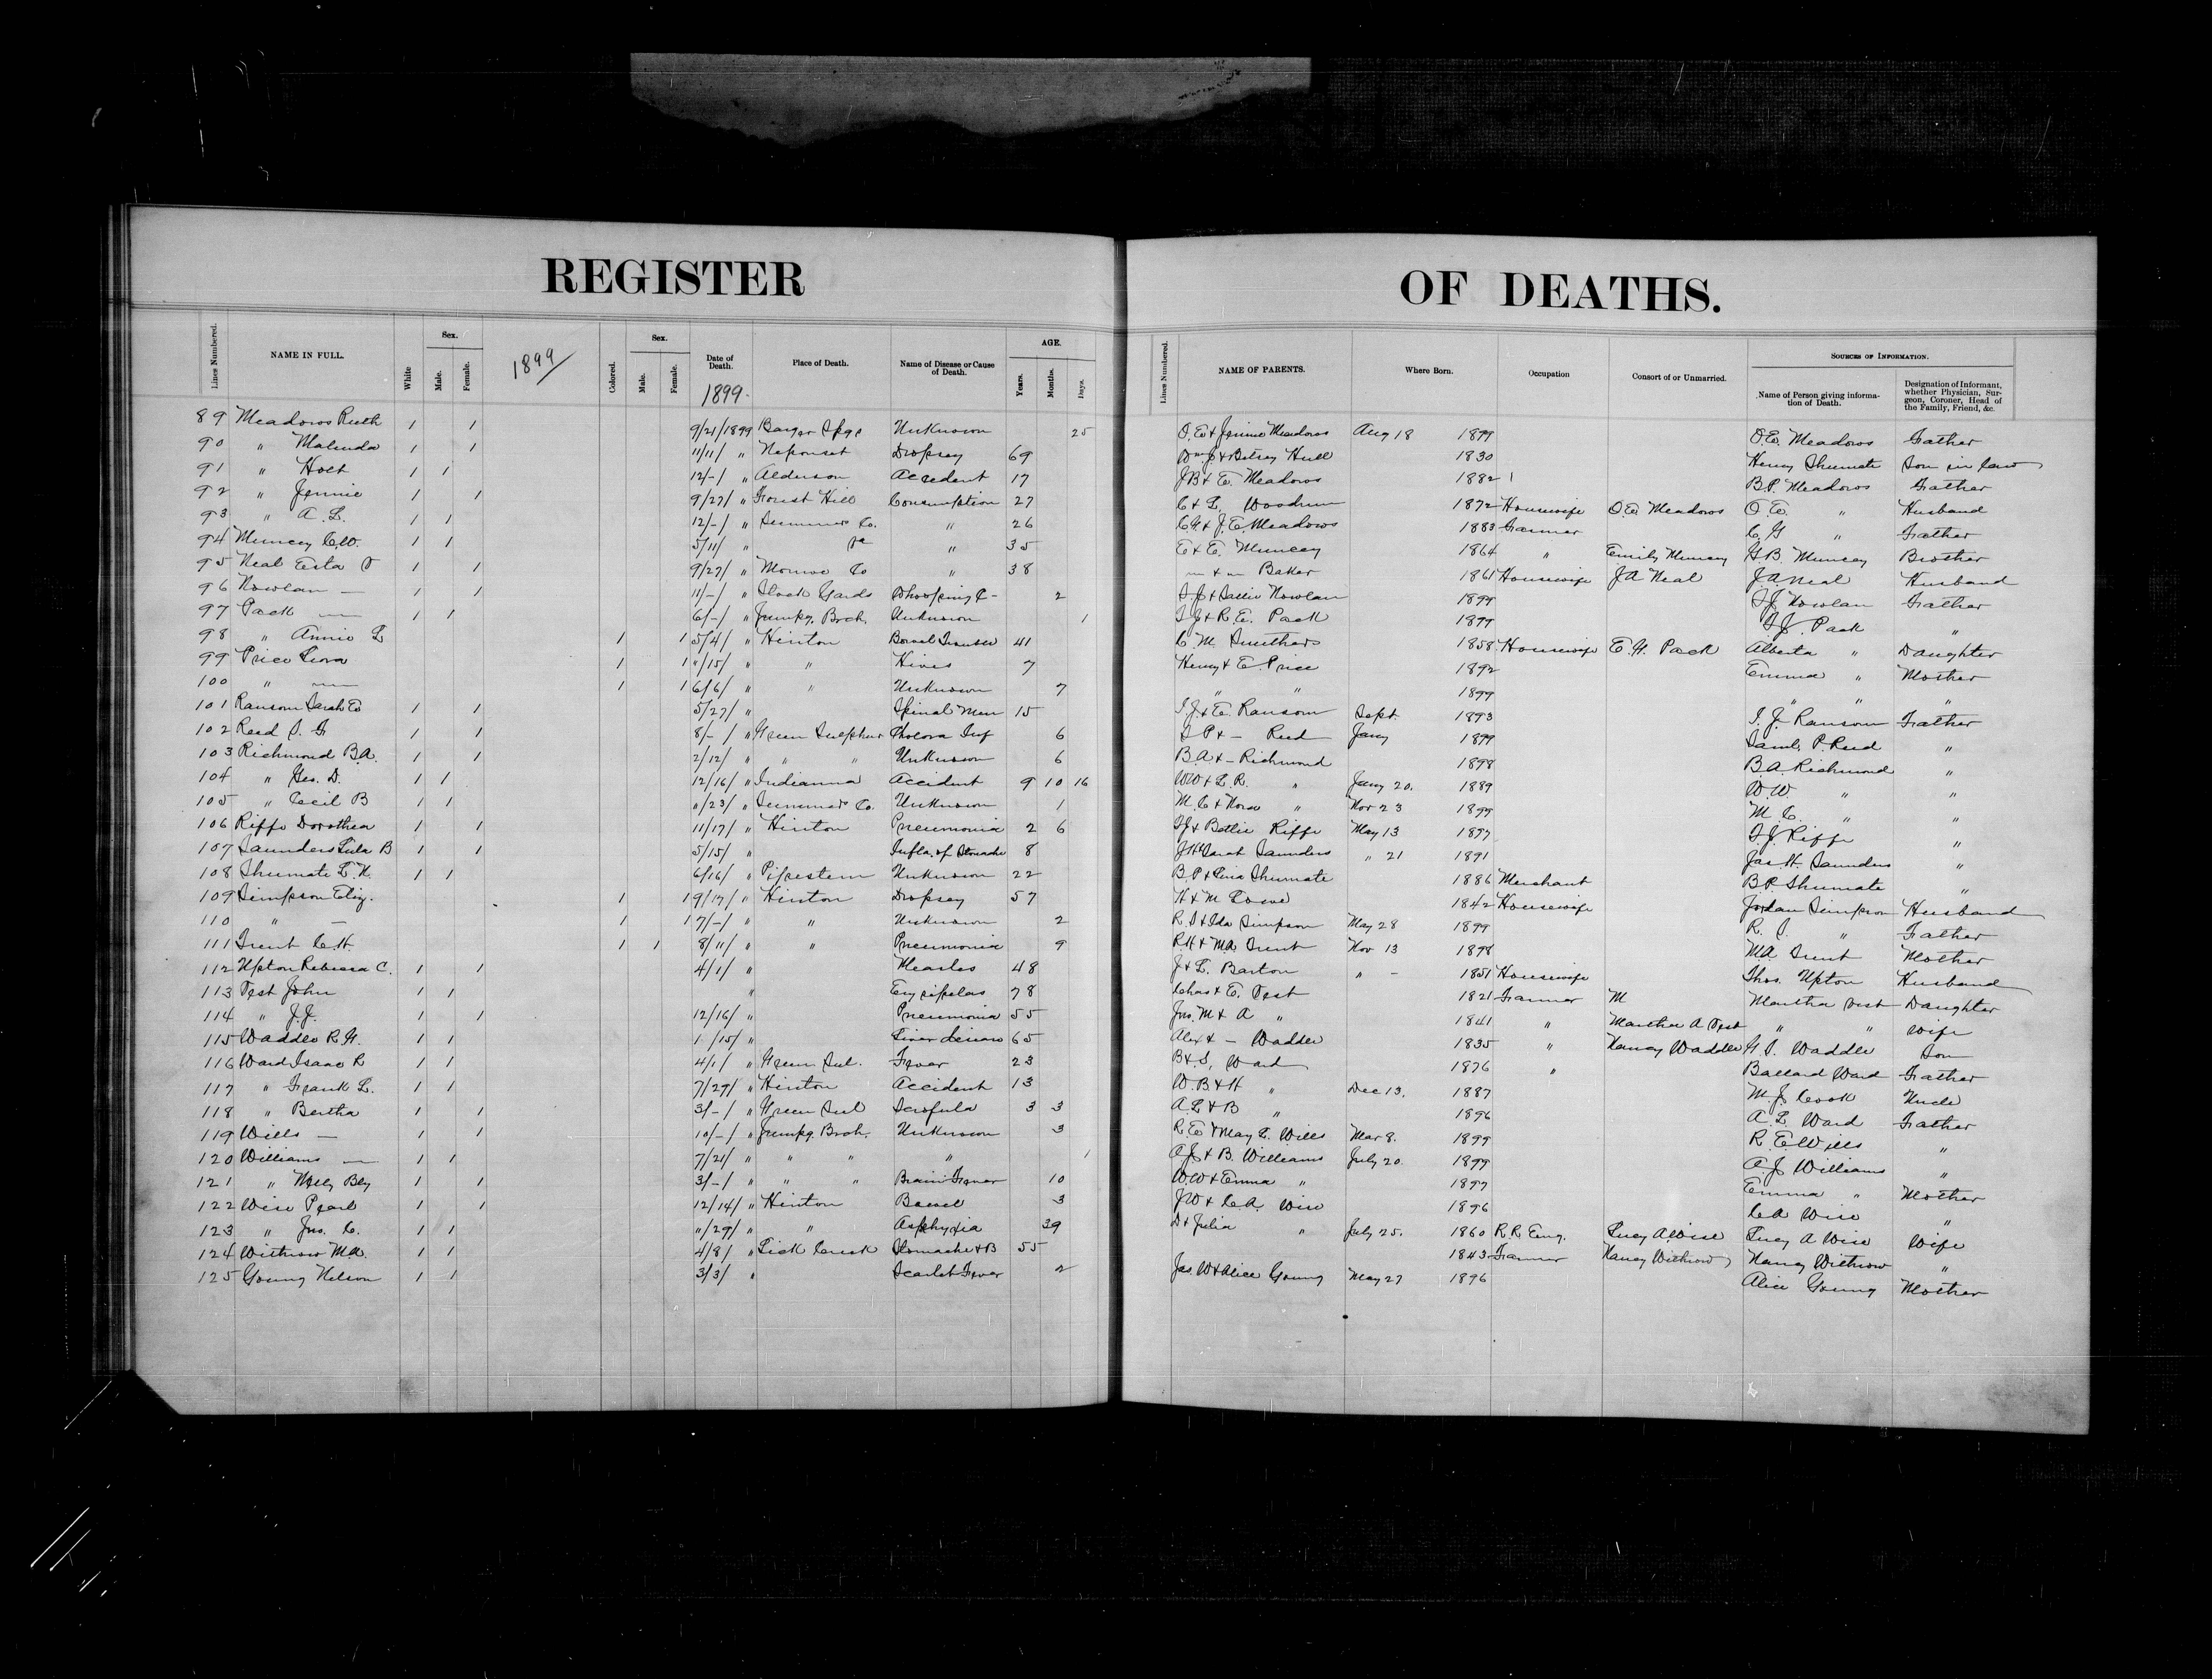 REGISTER OF DEATHS.
Lines Numbered. NAME IN FULL. White Sex. Male. Female. 1899 Colored. Sex. Male. Female. Date of Death. 1899. Place of Death. Name of Disease or Cause of Death. AGE. Years. Months. Days. Lines Numbered. NAME OF PARENTS. Where Born. Occupation Consort of or Unmarried. SOURCES OF INFORMATION. Name of Person giving information of Death. Designation of Informant, whether Physician, Surgeon, Coroner, Head of the Family, Friend, &c.
89 Meadows Ruth 1 1 9/21/1899 Barger Spgs Unknown 25 O.E. & Jennie Meadows Aug 18 1899 O.E. Meadows Father
90 " Malinda 1 1 11/11/ " Neponset Dropsey 69 Wm J & Betsey Hull 1830 Henry Shumate Son in law
91 " Holt 1 1 12/-/ " Alderson Accident 17 J B & E. Meadows 1882 B.P. Meadows Father
92 " Jennie 1 1 9/27/ " Forest Hill Consumption 27 C & L. Woodrum 1872 Housewife O.E. Meadows O.E. " Husband
93 " A.L. 1 1 12/-/ " Summers Co. " 26 C G & J.E. Meadows 1883 Farmer C.G " Father
94 Muncey C.W. 1 1 5/11/ " " 35 E & E. Muncey 1864 " Emily Muncey G B. Muncey Brother
95 Neal Esta 1 1 9/27/ " Monroe Co " 38 " & " Baker 1861 Housewife J A Neal J.A Neal Husband
96 Nowlan — 1 1 11/-/ " Stock Yards Whooping C- 2 I J & Sallie Nowlan 1899 I J Nowlan Father
97 Pack — 1 1 6/-/ " Jumpg. Brch. Unknown 1 I J & R.E. Pack 1899 I J. Pack "
98 " Annie L 1 1 5/4/ " Hinton Bowel Trouble 41 C M. Smithers 1858 Housewife E.H. Pack Alberta " Daughter
99 Price Leora 1 1 "/15/ " " Hives 7 Henry & E Price 1892 Emma " Mother
100 " — 1 1 6/6/ " " Unknown 7 " " 1899 " " "
101 Ransom Sarah E 1 1 5/27/ " Spinal Men 15 I J. & E. Ransom Sept. 1893 I. J. Ransom Father
102 Reed S. G 1 1 8/-/ " Green Sulphur Cholera Inf 6 S P & - Reed Jany 1899 Saml. P. Reed "
103 Richmond B.A. 1 1 2/12/ " " " Unknown 6 B.A & - Richmond 1898 B.A. Richmond "
104 " Geo. D. 1 1 12/16/ " Indianna Accident 9 10 16 W.W & L.R. " Jany 20. 1889 W.W. " "
105 " Cecil B 1 1 "/23/ " Summers Co. Unknown 1 M.C & Nora " Nov 23 1899 M.C. " "
106 Riffe Dorothea 1 1 11/17/ " Hinton Pneumonia 2 6 I J & Bettie Riffe May 13 1897 I.J. Riffe "
107 Saunders Lula B 1 1 5/15/ " Infla. of Stomache 8 J H & Sarah Saunders " 21 1891 Jas. H. Saunders "
108 Shumate L.N. 1 1 6/16/ " Pipestem Unknown 22 B.P & Lina Shumate 1886 Merchant B.P. Shumate "
109 Simpson Eliz. 1 1 9/17/ " Hinton Dropsey 57 H & M. Lowe 1842 Housewife Jordan Simpson Husband
110 " — 1 1 7/-/ " " Unknown 2 R.S & Ida Simpson May 28 1899 R.S. " Father
111 Trent C.H 1 1 8/11/ " " Pneumonia 9 R H & M.A Trent Nov 13 1898 MA Trent Mother
112 Upton Rebecca C. 1 1 4/1/ " Measles 48 J & L. Barton " - 1851 Housewife Thos. Upton Husband
113 Vest John 1 1 " Erysipelas 78 Chas & E. Vest 1821 Farmer M Martha Vest Daughter
114 " J.J. 1 1 12/16/ " Pneumonia 55 Jno. M & A " 1841 " Martha A Vest " " Wife
115 Waddle R.H. 1 1 1/15/ " Liver disease 65 Alex & - Waddle 1835 " Nancy Waddle G S. Waddle Son
116 Ward Isaac R 1 1 4/1/ " Green Sul. Fever 23 B & S. Ward 1876 " Ballard Ward Father
117 " Frank L. 1 1 7/27/ " Hinton Accident 13 W.B & H " Dec 13. 1887 M.J. Cook Uncle
118 " Bertha 1 1 3/-/ " Green Sul Scrofula 3 3 A.L & B " 1896 A.L. Ward Father
119 Wills — 1 1 10/-/ " Jumpg. Brch. Unknown 3 R.E & May L. Wills Mar 8. 1899 R.E. Wills "
120 Williams — 1 1 7/21/ " " " " 1 A J & B. Williams July 20. 1899 A.J Williams "
121 " 1 1 3/-/ " " " Brain Fever 10 W.W & Emma " 1897 Emma " Mother
122 Wise Pearl 1 1 12/14/ " Hinton Bowel 3 J W & C.A. Wise 1896 C A Wise "
123 " Jno. C. 1 1 "/29/ " " Asphyxia 39 D & Julia " July 25. 1860 R.R. Eng. Lucy A. Wise Lucy A Wise Wife
124 Withrow M.A. 1 1 4/8/ " Lick Creek Stomache & B 55 1843 Farmer Nancy Withrow Nancy Withrow "
125 Young Nelson 1 1 3/3/ " Scarlet Fever 2 Jas. W & Alice Young May 27 1896 Alice Young Mother